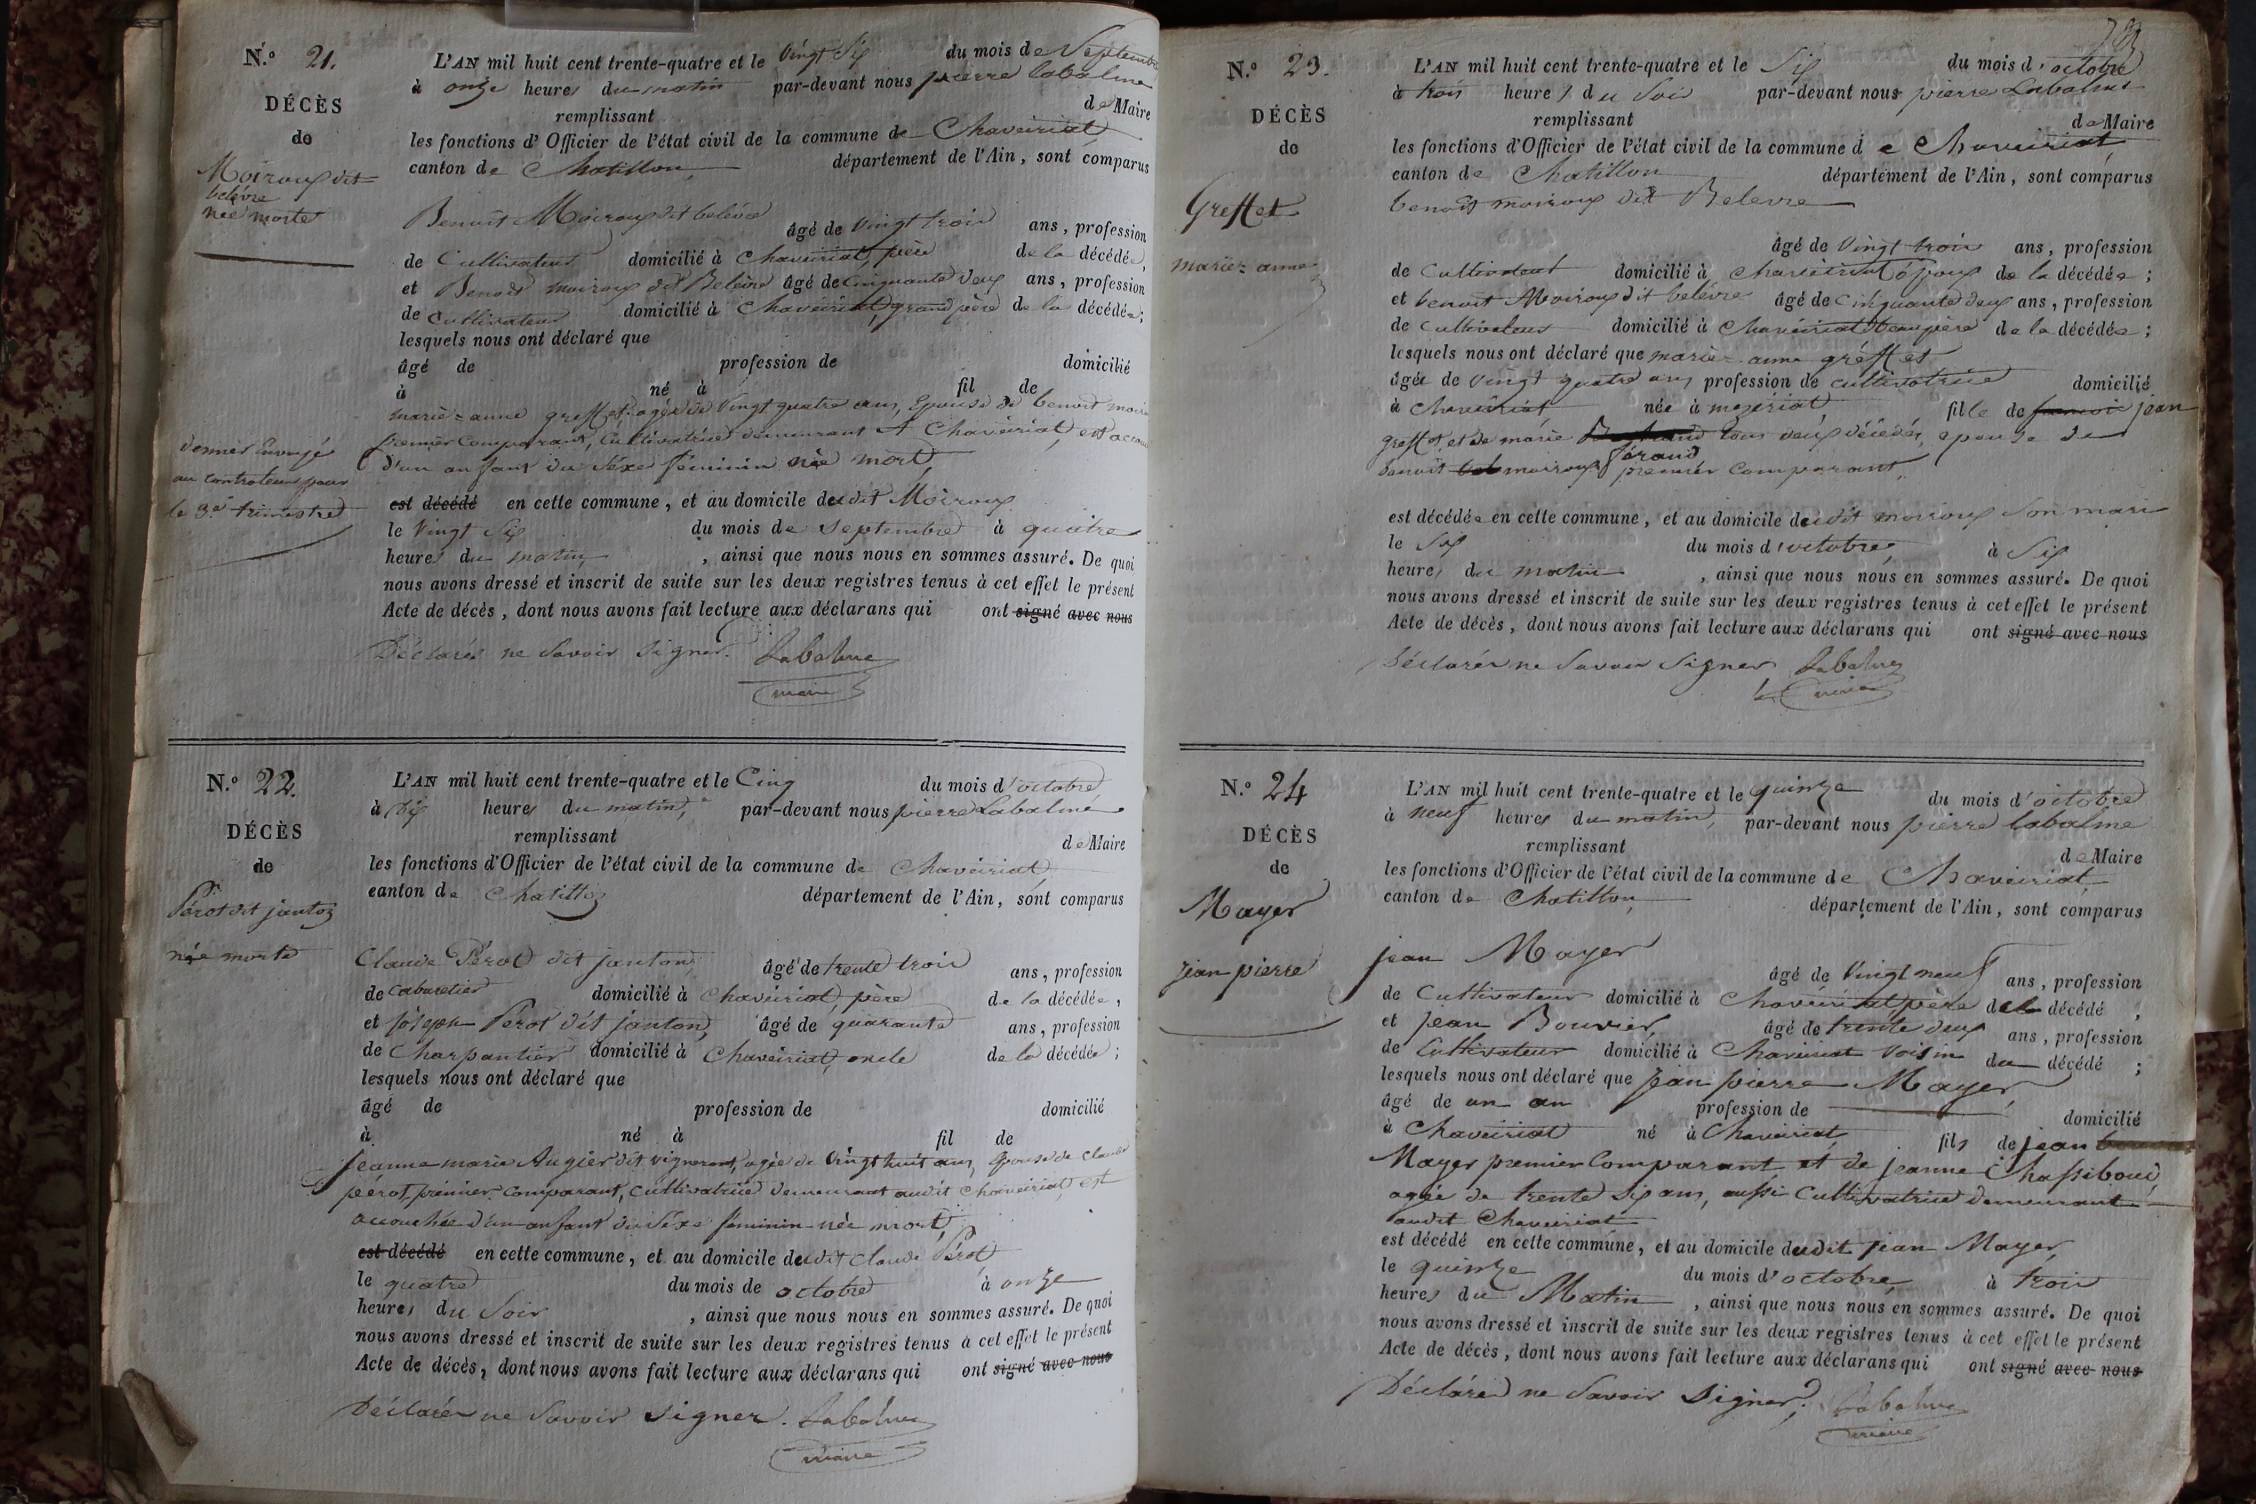 N.° 21.
DÉCÈS
de
Moiroux dit
belévre
née morte
donner Envoyé
au controleur pour
le 3.e trimestre
L'AN mil huit cent trente-quatre et le Vingt Six du mois de Septembre
à onze heures du matin par-devant nous pierre labalme
remplissant de Maire
les fonctions d'Officier de l'état civil de la commune de Chaveiriat,
canton de Chatillon, département de l'Ain, sont comparus
Benoit Moiroux dit belévre
âgé de Vingt trois ans, profession
de Cultivateur domicilié à Chaveiriat, père de la décédée,
et Benoit moiroux dit Belévre âgé de Cinquante deux ans, profession
de Cultivateur domicilié à Chaveiriat, grand père de la décédée;
lesquels nous ont déclaré que
âgé de profession de domicilié
à né à fil de
marie=anne greffet, agée de Vingt quatre ans, Epouse de benoit moiroux
premier Comparant, Cultivatrice demeurant A Chaveiriat, est accouchée
d'un enfant du Séxe féminin née mort
est décédé en cette commune, et au domicile dudit Moiroux
le Vingt Six du mois de Septembre à quatre
heures du matin, , ainsi que nous nous en sommes assuré. De quoi
nous avons dressé et inscrit de suite sur les deux registres tenus à cet effet le présent
Acte de décès, dont nous avons fait lecture aux déclarans qui ont signé avec nous
Déclarés ne Savoir Signer. Labalme
maire
N.° 22.
DÉCÈS
de
Pérot dit janton
née morte
L'AN mil huit cent trente-quatre et le Cinq du mois d'octobre
à Dix heures du matin, par-devant nous pierre Labalme
remplissant de Maire
les fonctions d'Officier de l'état civil de la commune de Chaveiriat,
canton de Chatillon département de l'Ain, sont comparus
Claude Pérot dit janton, âgé de trente trois ans, profession
de Cabaretier domicilié à Chaveiriat, père de la décédée,
et joseph Pérot dit janton, âgé de quarante ans, profession
de Charpantier domicilié à Chaveiriat, oncle de la décédée;
lesquels nous ont déclaré que
âgé de profession de domicilié
à né à fil de
jeanne marie Augier dit vigneront, agée de Vingt huit ans, Epouse de Claude
pérot, prémier Comparant, Cultivatrice demeurant audit Chaveiriat, est
accouchée d'un enfant du Séxe féminin née mort,
est décédé en cette commune, et au domicile dudit Claude Pérot
le quatre du mois de octobre à onze
heures du Soir , ainsi que nous nous en sommes assuré. De quoi
nous avons dressé et inscrit de suite sur les deux registres tenus à cet effet le présent
Acte de décès, dont nous avons fait lecture aux déclarans qui ont signé avec nous
Déclarés ne Savoir Signer. Labalme
maire
N.° 23.
DÉCÈS
de
Greffet
marie=anne
L'AN mil huit cent trente-quatre et le Six du mois d'octobre
à trois heures du Soir par-devant nous pierre Labalme
remplissant de Maire
les fonctions d'Officier de l'état civil de la commune de Chaveiriat,
canton de Chatillon département de l'Ain, sont comparus
benoit moiroux dit Belevre
âgé de Vingt trois ans, profession
de Cultivateur domicilié à Chaveiriat époux de la décédée;
et benoit Moiroux dit belévre âgé de Cinquante deux ans, profession
de Cultivateur domicilié à Chaveiriat, beaupère de la décédée;
lesquels nous ont déclaré que marie=anne gréffet
âgée de Vingt quatre ans profession de cultivatrice domicilié
à Chaveiriat née à mezériat, fille de jean
greffet, et de marie féraud tous deux décédés, epouse de
benoit moiroux premier Comparant,
est décédée en cette commune, et au domicile dudit moiroux Son mari
le Six du mois d'octobre, à Six
heures du matin , ainsi que nous nous en sommes assuré. De quoi
nous avons dressé et inscrit de suite sur les deux registres tenus à cet effet le présent
Acte de décès, dont nous avons fait lecture aux déclarans qui ont signé avec nous
Déclarés ne Savoir Signer Labalme
maire
N.° 24
DÉCÈS
de
Mayer
jean pierre
L'AN mil huit cent trente-quatre et le quinze du mois d'octobre
à neuf heures du matin, par-devant nous pierre labalme
remplissant de Maire
les fonctions d'Officier de l'état civil de la commune de Chaveiriat,
canton de Chatillon, département de l'Ain, sont comparus
jean Mayer
âgé de Vingt neuf ans, profession
de Cultivateur domicilié à Chaveiriat, père de la décédé,
et jean Bouvier, âgé de trente deux ans, profession
de Cultivateur domicilié à Chaveiriat Voisin du décédé;
lesquels nous ont déclaré que jean pierre Mayer,
âgé de un an profession de domicilié
à Chaveiriat né à Chaveiriat fils de jean
Mayer premier Comparant et de jeanne Chassiboud,
agée de trente Six ans, aussi Cultivatrice demeurant
audit Chaveiriat
est décédé en cette commune, et au domicile dudit jean Mayer,
le quinze du mois d'octobre, à trois
heures du Matin , ainsi que nous nous en sommes assuré. De quoi
nous avons dressé et inscrit de suite sur les deux registres tenus à cet effet le présent
Acte de décès, dont nous avons fait lecture aux déclarans qui ont signé avec nous
Déclarés ne Savoir Signer, Labalme
maire